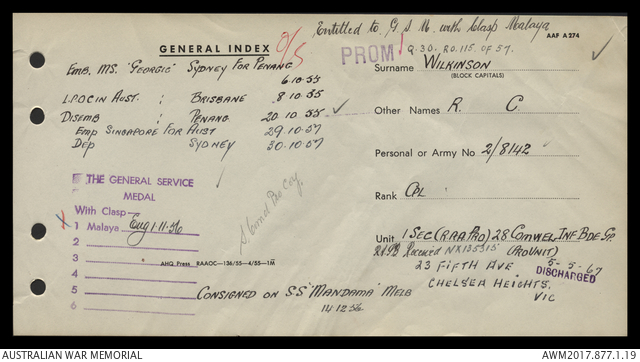 Entitled to G S M with Clasp Malaya
AAF A 274
GENERAL INDEX
O/S
PROM
Q.30. RO.115 OF 57.
Emb. MS. "Georgic" Sydney For Penang
6.10.55
L.P.O.C in Aust. : Brisbane 8.10.55
Disemb : Penang 20.10.55
Emp Singapore For Aust 29.10.57
Dep Sydney 30.10.57
Surname WILKINSON
(BLOCK CAPITALS)
Other Names R. C.
Personal or Army No. 2/8142
Rank Cpl
THE GENERAL SERVICE
MEDAL
With Clasp
1 Malaya Eng 1.11.56
2
3
4
5
6
AHQ Press RAAOC—136/55—4/55—1M
Consigned on SS "Mandama" Melb
14.12.56
Unit 1 Sec (RAA Pro) 28 Comwel Inf Bde Gp.
Received NX135315 (Pro Unit)
23 Fifth Ave
5-5-67
DISCHARGED
Chelsea Heights.
Vic
AUSTRALIAN WAR MEMORIAL
AWM2017.877.1.19